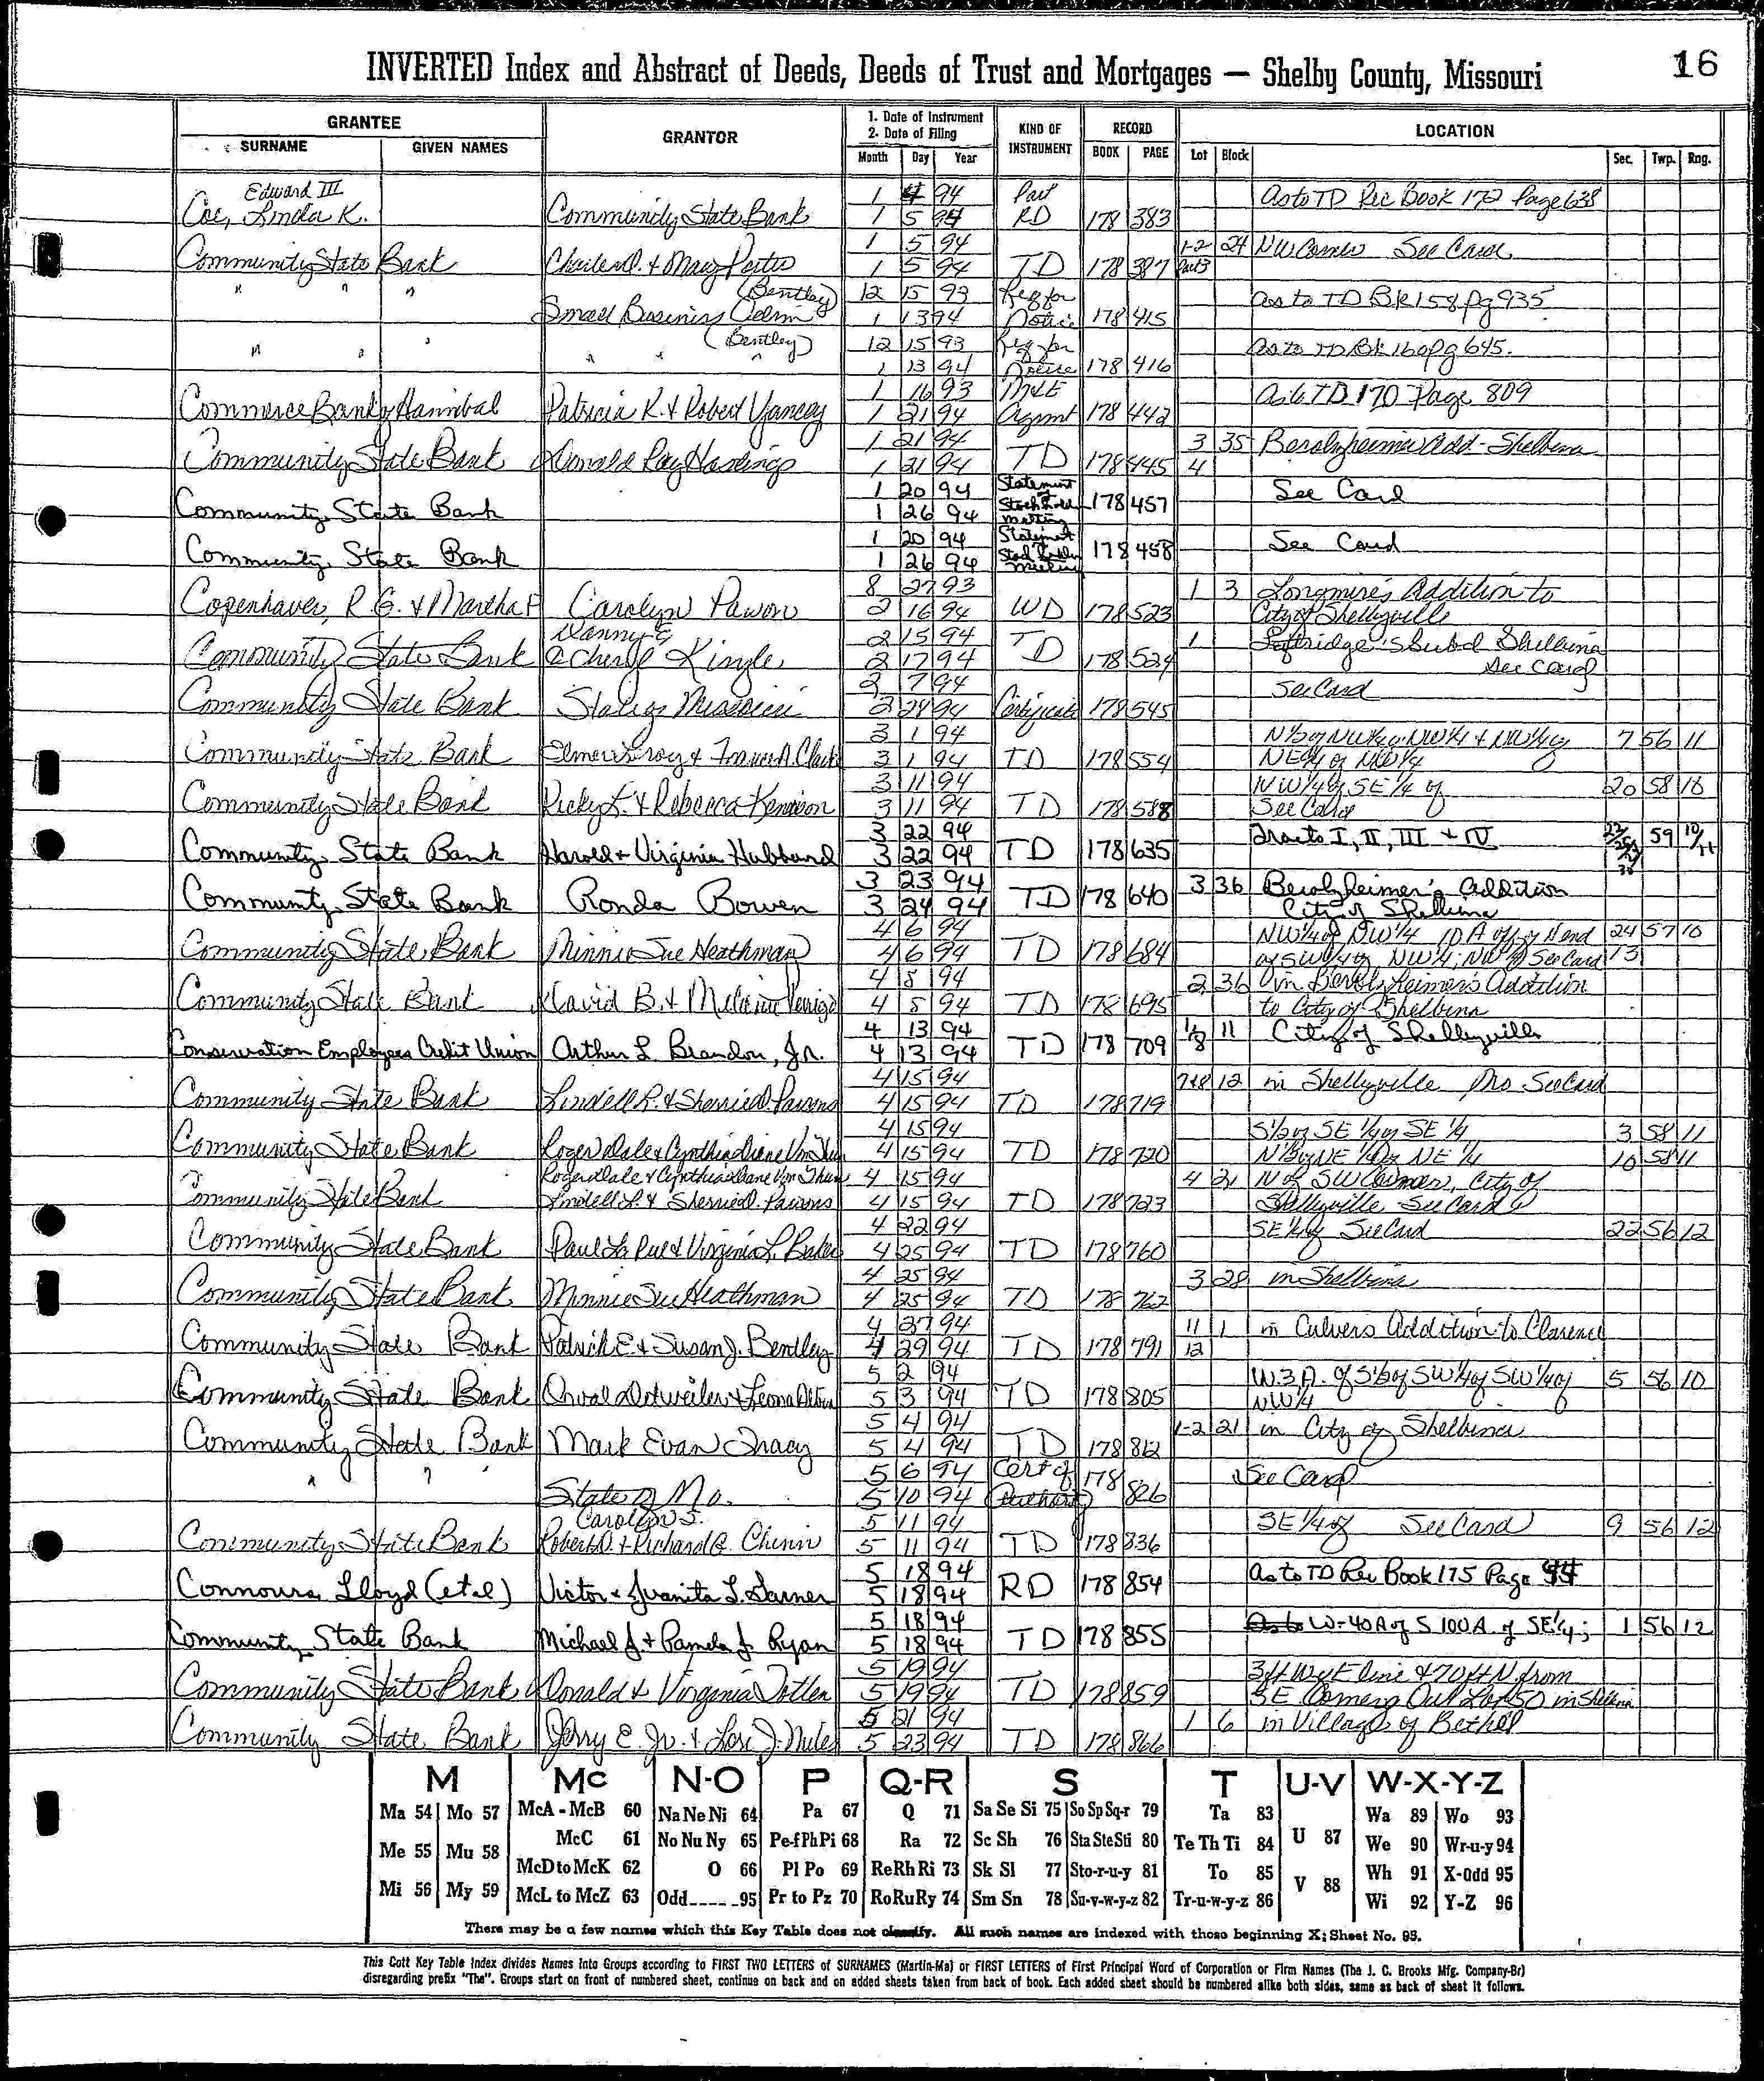 16
INVERTED Index and Abstract of Deeds, Deeds of Trust and Mortgages — Shelby County, Missouri
GRANTEE GRANTOR 1. Date of Instrument 2. Date of Filing KIND OF INSTRUMENT RECORD LOCATION
SURNAME GIVEN NAMES Month Day Year BOOK PAGE Lot Block Sec. Twp. Rng.
Edward III 1 4 94 Part as to TD Rec Book 172 Page 638
Coe, Linda K. Community State Bank 1 5 94 RD 178 383
1 5 94 1-2 24 NW Corner See Card
Community State Bank Charles D. & Mary 1 5 94 TD 178 387 Part 3
" " " (Bentley) 12 15 93 Req for as to TD Bk 158 pg 935
Small Business Adm 1 13 94 Notice 178 415
" " " (Bentley) 12 15 93 Req for as to TD Bk 160 pg 645.
" " " 1 13 94 Notice 178 416
1 16 93 as to TD 170 Page 809
Commerce Bank of Hannibal Patricia K. & Robert Yancey 1 21 94 Agmnt 178 442
1 21 94 3 35 Berolzheimer Add. Shelbina
Community State Bank Donald Ray Hastings 1 21 94 TD 178 445 4
1 20 94 Statement See Card
Community State Bank 1 26 94 Stockhold Meeting 178 457
1 20 94 Statement See Card
Community State Bank 1 26 94 Meeting 178 458
8 27 93 1 3 Longmire's Addition to
Copenhaver, R.G. & Martha F Carolyn 2 16 94 WD 178 523 City of Shelbyville
Danny G 2 15 94 1 Subd Shelbina
Community State Bank & Cheryl Kinzle 2 17 94 TD 178 524 See Card
2 7 94 See Card
Community State Bank State of Missouri 2 24 94 Certificate 178 545
3 1 94 N½ of NW¼ of NW¼ & NW¼ of 7 56 11
Community State Bank Elmer Leroy & Frances A. Clark 3 1 94 TD 178 554 NE¼ of NW¼
3 11 94 NW¼ of SE¼ of 20 58 10
Community State Bank Ricky L. & Rebecca Kennison 3 11 94 TD 178 588 See Card
3 22 94 Tracts I, II, III & IV 59 10/11
Community State Bank Harold & Virginia Hubbard 3 22 94 TD 178 635
3 23 94 3 36 Berolzheimer's Addition
Community State Bank Ronda Bowen 3 24 94 TD 178 640 City of Shelbina
4 6 94 NW¼ of NW¼ 10 A off of N end 24 57 10
Community State Bank Minnie Sue Heathman 4 6 94 TD 178 684 of SW¼ of NW¼; NW¼ See Card 13
4 8 94 2 36 in Berolzheimer's Addition
Community State Bank David B. & 4 8 94 TD 178 695 to City of Shelbina
4 13 94 11 City of Shelbyville
Conservation Employees Credit Union Arthur L. Brandon, Jr. 4 13 94 TD 178 709
4 15 94 7&8 12 in Shelbyville Mo See Card
Community State Bank Lindell R. & Sherrie D. Parsons 4 15 94 TD 178 719
4 15 94 S½ of SE¼ of SE¼ 3 58 11
Community State Bank Roger Dale & Cynthia Diane Von Thun 4 15 94 TD 178 720 N½ of NE¼ of NE¼ 10 58 11
Roger Dale & Cynthia Diane Von Thun 4 15 94 4 21 N of SW Corner, City of
Community State Bank Lindell L. & Sherrie D. Parsons 4 15 94 TD 178 723 Shelbyville See Card
4 22 94 SE¼ of See Card 22 56 12
Community State Bank Paul La Rue & Virginia L. Baker 4 25 94 TD 178 760
4 25 94 3 28 in Shelbina
Community State Bank Minnie Sue Heathman 4 25 94 TD 178 762
4 27 94 11 1 in Culvers Addition to Clarence
Community State Bank Patrick E. & Susan J. Bentley 4 29 94 TD 178 791 12
5 2 94 W. 3 A. of S½ of SW¼ of SW¼ of 5 56 10
Community State Bank Orval Detweiler & Leona 5 3 94 TD 178 805 NW¼
5 4 94 1-2 21 in City of Shelbina
Community State Bank Mark Evan Tracy 5 4 94 TD 178 812
" " " 5 6 94 Cert of 178 See Card
State of Mo. 5 10 94 826
Carolyn S. 5 11 94 SE¼ of See Card 9 56 12
Community State Bank Robert D. & Richard 5 11 94 TD 178 836
5 18 94 as to TD Rec Book 175 Page 44
Connoura Lloyd (et al) Victor & Juanita L. Garner 5 18 94 RD 178 854
5 18 94 W-40 A of S 100 A. of SE¼; 1 56 12
Community State Bank Michael J. & Pamela J. Ryan 5 18 94 TD 178 855
5 19 94 3 ft W of E line & 70 ft N from
Community State Bank Donald & Virginia Totten 5 19 94 TD 178 859 SE Corner of Out Lot 50 in Shelbina
5 21 94 1 6 in Village of Bethel
Community State Bank Jerry E. Jr. & Lori J. Niles 5 23 94 TD 178 866
M Mc N-O P Q-R S T U-V W-X-Y-Z
Ma 54 Mo 57 McA - McB 60 Na Ne Ni 64 Pa 67 Q 71 Sa Se Si 75 So Sp Sq-r 79 Ta 83 U 87 Wa 89 Wo 93
Me 55 Mu 58 McC 61 No Nu Ny 65 Pe-f Ph Pi 68 Ra 72 Sc Sh 76 Sta Ste Sti 80 Te Th Ti 84 We 90 Wr-u-y 94
McD to McK 62 O 66 Pl Po 69 Re Rh Ri 73 Sk Sl 77 Sto-r-u-y 81 To 85 V 88 Wh 91 X-Odd 95
Mi 56 My 59 McL to McZ 63 Odd____95 Pr to Pz 70 Ro Ru Ry 74 Sm Sn 78 Su-v-w-y-z 82 Tr-u-w-y-z 86 Wi 92 Y-Z 96
There may be a few names which this Key Table does not classify. All such names are indexed with those beginning X; Sheet No. 95.
This Cott Key Table Index divides Names into Groups according to FIRST TWO LETTERS of SURNAMES (Martin-Ma) or FIRST LETTERS of First Principal Word of Corporation or Firm Names (The J. C. Brooks Mfg. Company-Br)
disregarding prefix "The". Groups start on front of numbered sheet, continue on back and on added sheets taken from back of book. Each added sheet should be numbered alike both sides, same as back of sheet it follows.